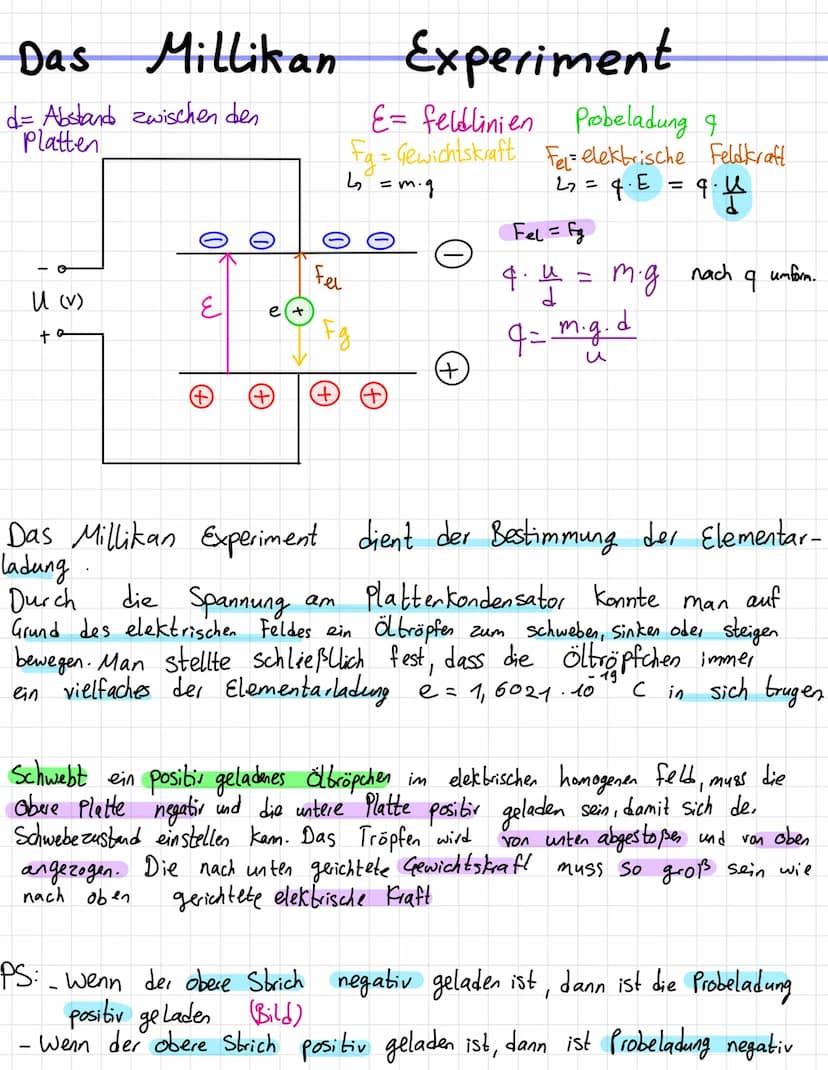 Das Millikan Experiment
d= Abstand zwischen den
Platten
E= Feldlinien
Probeladung q
Fg = Gewichtskraft
↳ = m·g
Fel= elektrische Feldkraft
↳ = q·E = q·U/d
Fel = Fg
q·u/d = m·g nach q umform.
q= m·g·d/u
- U (V) +
E
e +
Fel
Fg
− − − −
−
+
+ + + +
Das Millikan Experiment dient der Bestimmung der Elementar-
ladung.
Durch die Spannung am Plattenkondensator konnte man auf
Grund des elektrischen Feldes ein Öltröpfen zum schweben, sinken oder steigen
bewegen. Man stellte schließlich fest, dass die Öltröpfchen immer
ein vielfaches der Elementarladung e = 1,6021·10⁻¹⁹ C in sich trugen
Schwebt ein positiv geladenes Öltröpchen im elektrischen homogenen Feld, muss die
Obere Platte negativ und die untere Platte positiv geladen sein, damit sich der
Schwebezustand einstellen kam. Das Tröpfen wird von unten abgestoßen und von oben
angezogen. Die nach unten gerichtete Gewichtskraft muss so groß sein wie
nach oben gerichtete elektrische Kraft
PS: - Wenn der obere Strich negativ geladen ist, dann ist die Probeladung
positiv geladen (Bild)
- Wenn der obere Strich positiv geladen ist, dann ist Probeladung negativ